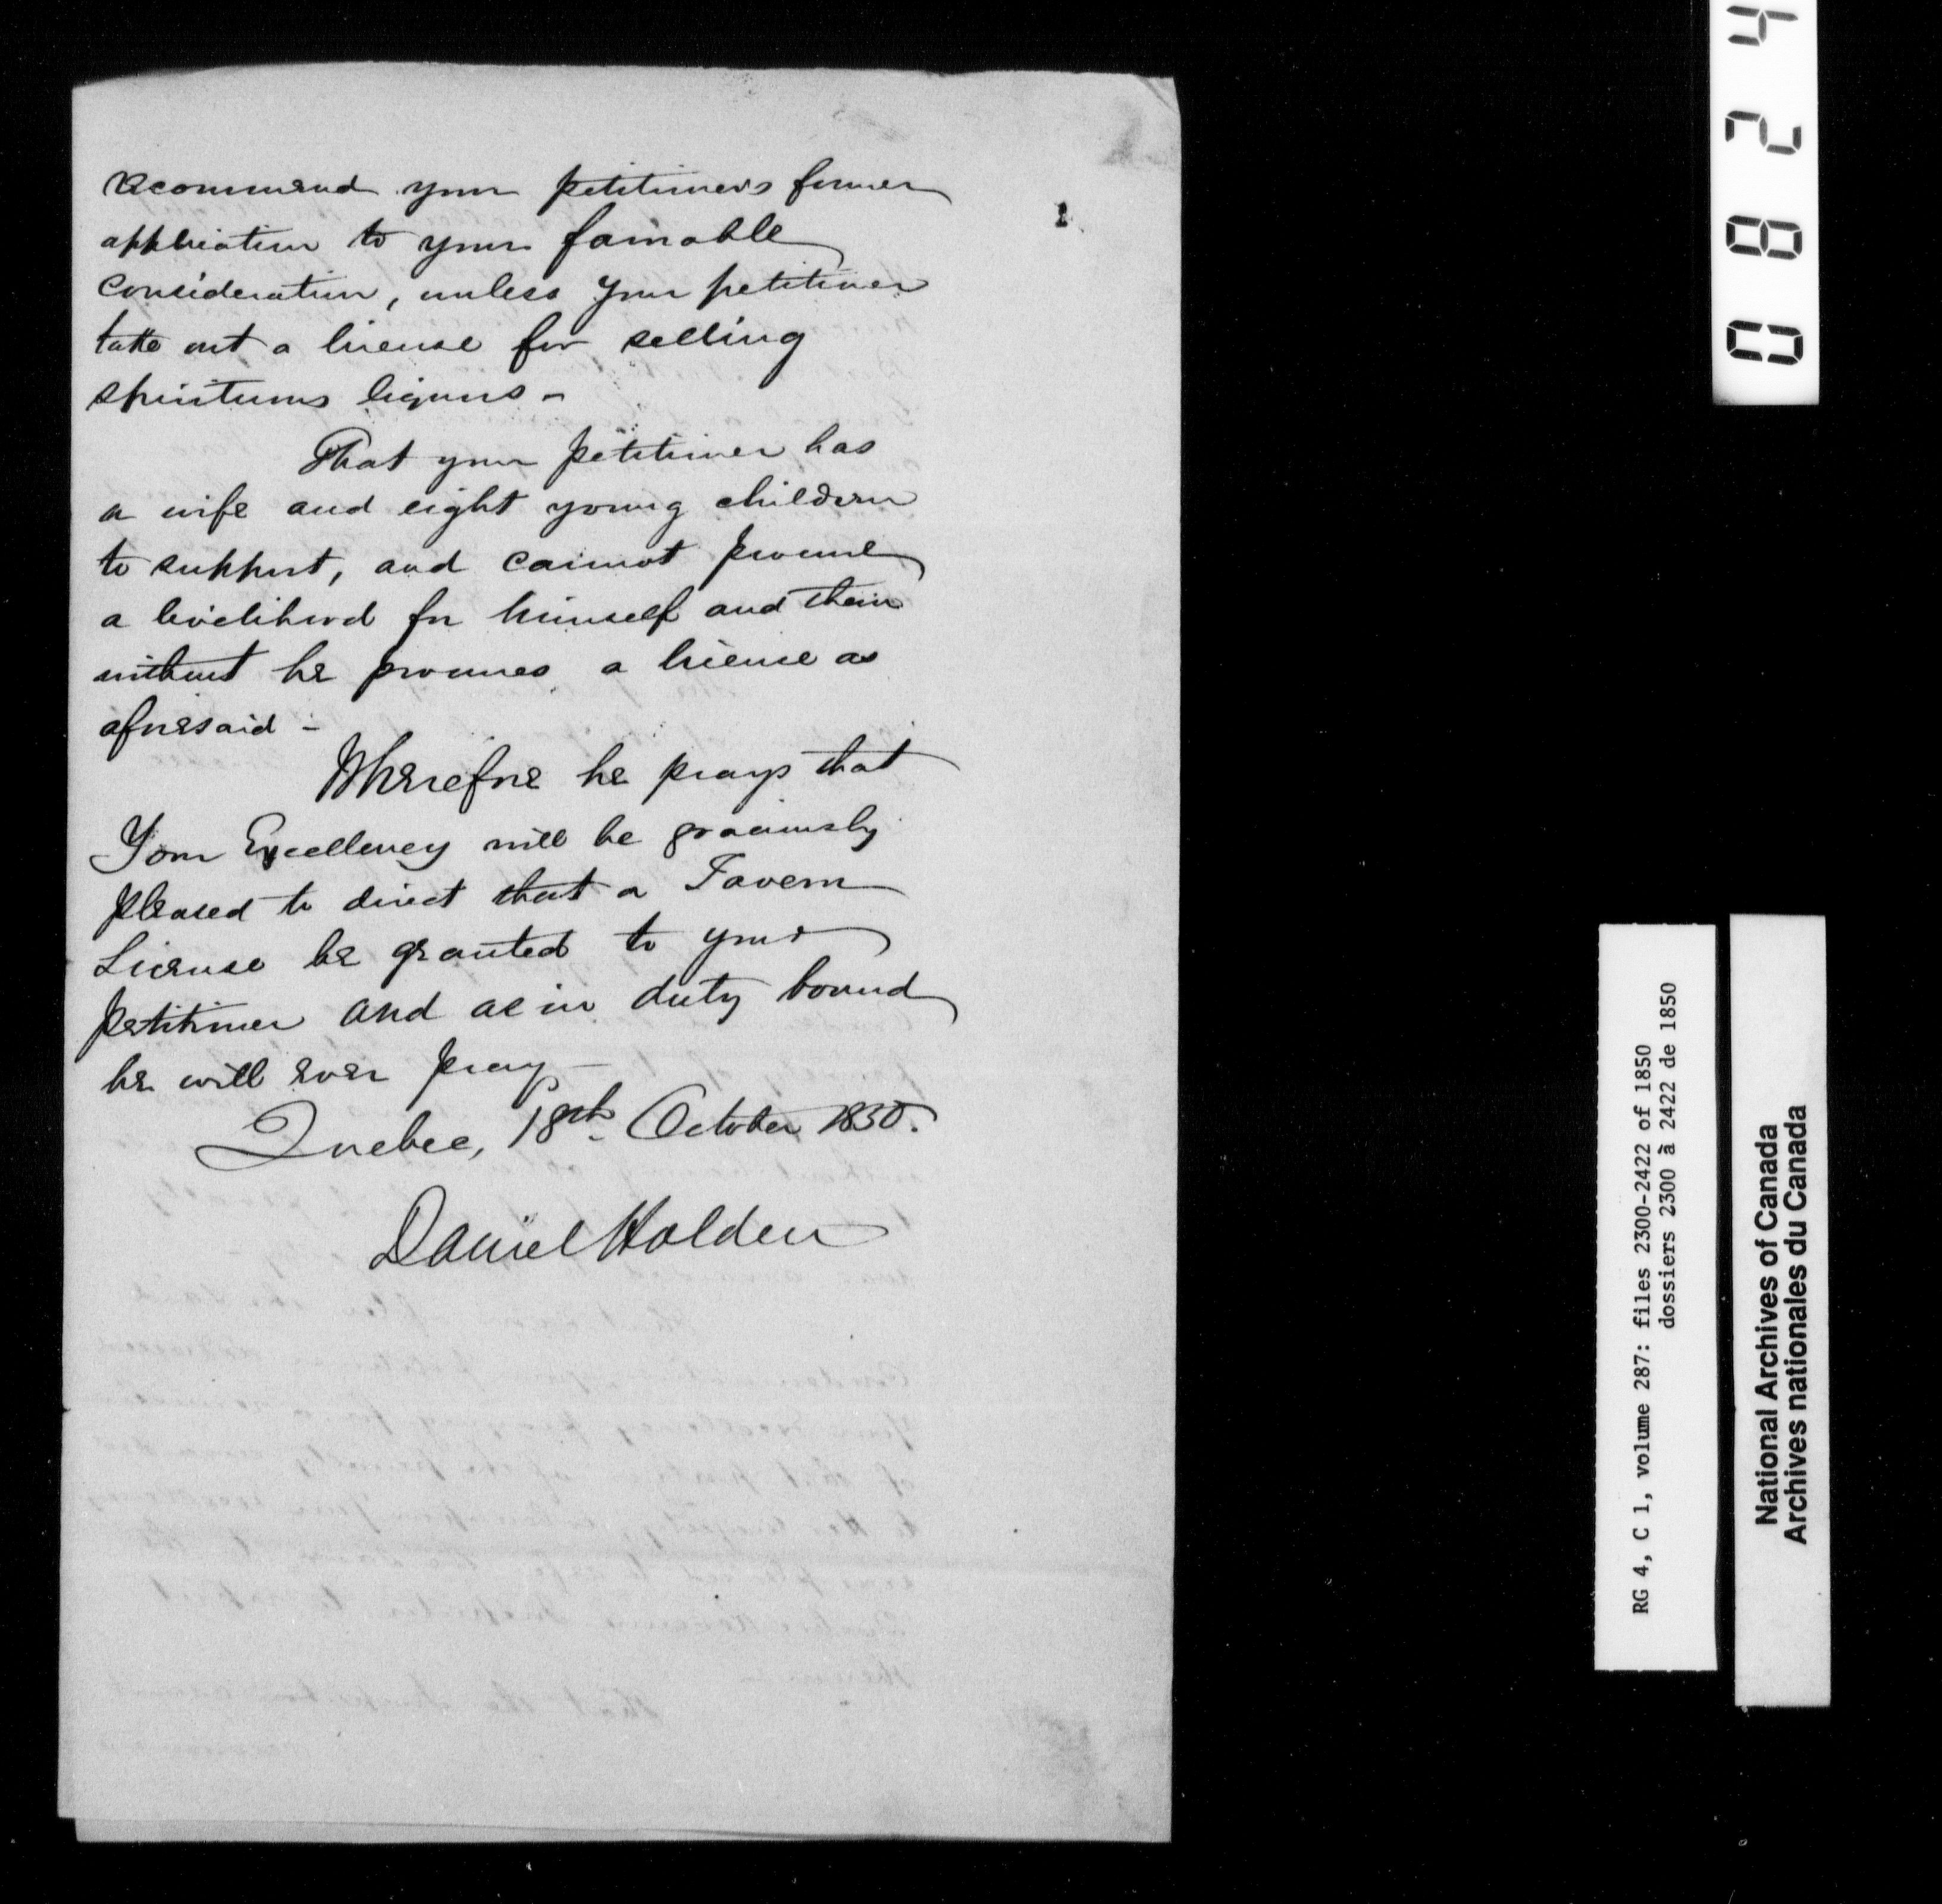 recommend your petitioner's former
application to your favorable
consideration, unless your petitioner
take out a license for selling
spirituous liquors -
That your petitioner has
a wife and eight young children
to support, and cannot procure
a livelihood for himself and them
without he procures a license as
aforesaid -
Wherefore he prays that
Your Excellency will be graciously
pleased to direct that a Tavern
License be granted to your
petitioner and as in duty bound
he will ever pray -
Quebec, 18th October 1850.
Daniel Holden
0824
RG 4, C 1, volume 287: files 2300-2422 of 1850
dossiers 2300 à 2422 de 1850
National Archives of Canada
Archives nationales du Canada